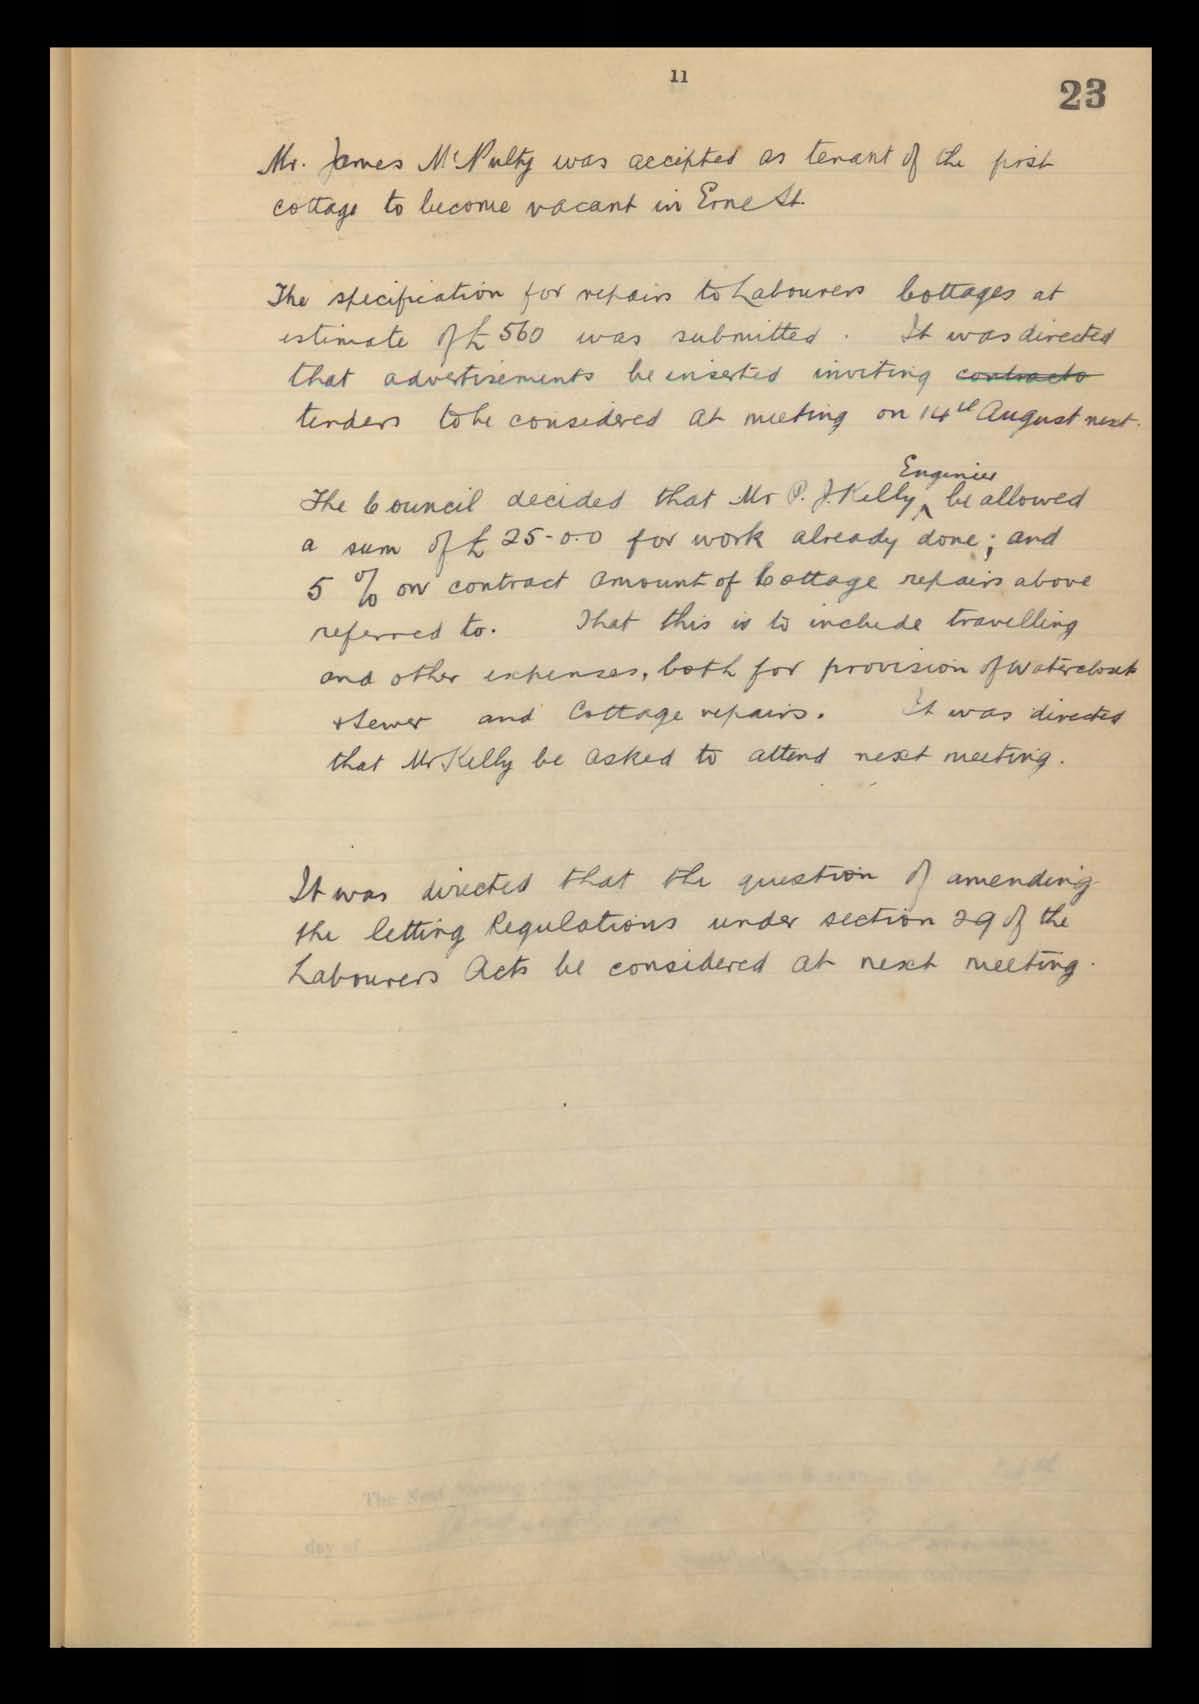 11
23
Mr. James McNulty was accepted as tenant of the first
cottage to become vacant in Erne St.
The specification for repairs to Labourers Cottages at
estimate of £560 was submitted. It was directed
that advertisements be inserted inviting contracts
tenders to be considered at meeting on 14th August next.
Engineer
The Council decided that Mr P. J. Kelly, be allowed
a sum of £25-0.0 for work already done; and
5 % on contract amount of Cottage repairs above
referred to. That this is to include travelling
and other expenses, both for provision of Waterclosets
& Sewer and Cottage repairs. It was directed
that Mr Kelly be asked to attend next meeting.
It was directed that the question of amending
the letting Regulations under section 29 of the
Labourers Acts be considered at next meeting.
The Next
day of